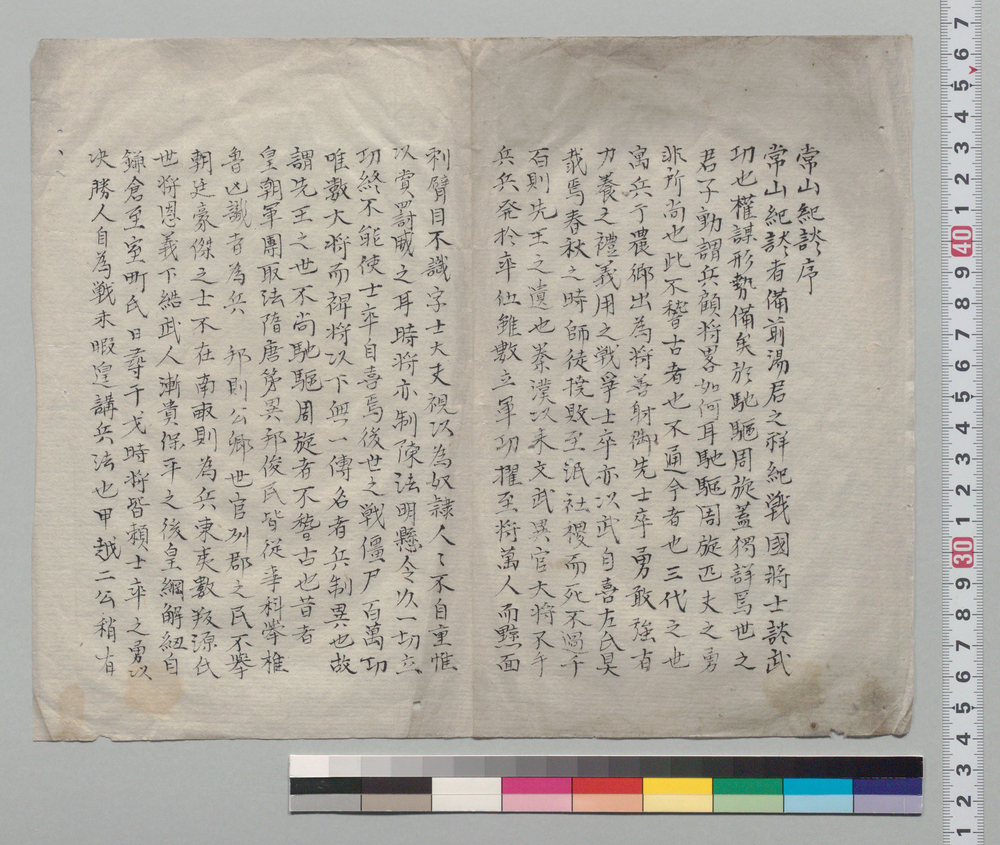 常山紀談序
常山紀談者備前湯君之祥紀戦國将士談武
功也權謀形勢備矣於馳驅周旋蓋獨詳焉世之
君子動謂兵顧将畧如何耳馳驅周旋匹夫之勇
非所尚也此不稽古者也不通今者也三代之世
寓兵于農郷出為将善射御先士卒勇敢強有
力養之禮義用之戦爭士卒亦以武自喜左氏具
載焉春秋之時師徒撓敗至泯社稷而死不過千
百則先王之遺也秦漢以来文武異官大将不手
兵兵発於卒伍雖數立軍功擢至将萬人而黥面
刺臂目不識字士大夫視以為奴隷人〻不自重惟
以賞罰威之耳時将亦制陳法明懸令以一切立
功終不能使士卒自喜焉後世之戦僵尸百萬功
唯載大将而裨将以下無一傳名者兵制異也故
謂先王之世不尚馳驅周旋者不稽古也昔者
皇朝軍團取法隋唐第異邦俊民皆從事科舉椎
魯凶譏者為兵 邦則公卿世官列郡之民不舉
朝廷豪傑之士不在南畝則為兵東夷數叛源氏
世将恩義下結武人漸貴保平之後皇綱解紐自
鎌倉至室町氏日尋干戈時将皆頼士卒之勇以
决勝人自為戦未暇遑講兵法也甲越二公稍有